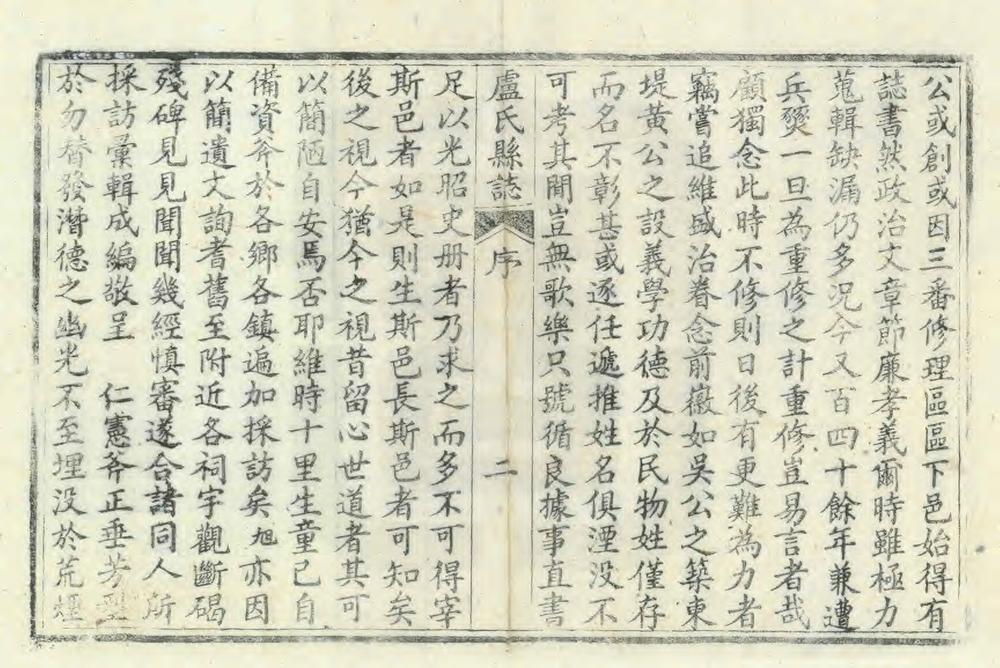 公或創或因三番修理區區下邑始得有
誌書然政治文章節廉孝義爾時雖極力
蒐輯缺漏仍多況今又百四十餘年兼遭
兵燹一旦為重修之計重修豈易言者哉
顧獨念此時不修則日後有更難為力者
竊嘗追維盛治眷念前徽如吳公之築東
堤黃公之設義學功德及於民物姓僅存
而名不彰甚或逐任遞推姓名俱湮没不
可考其間豈無歌樂只號循良據事直書
盧氏縣誌 序 二
足以光昭史册者乃求之而多不可得宰
斯邑者如是則生斯邑長斯邑者可知矣
後之視今猶今之視昔留心世道者其可
以簡陋自安焉否耶維時十里生童已自
備資斧於各鄉各鎮遍加採訪矣旭亦因
以簡遺文詢耆舊至附近各祠宇觀斷碣
殘碑見見聞聞幾經慎審遂合諸同人所
採訪彙輯成編敬呈 仁憲斧正垂芳型
於勿替發潛德之幽光不至埋没於荒煙